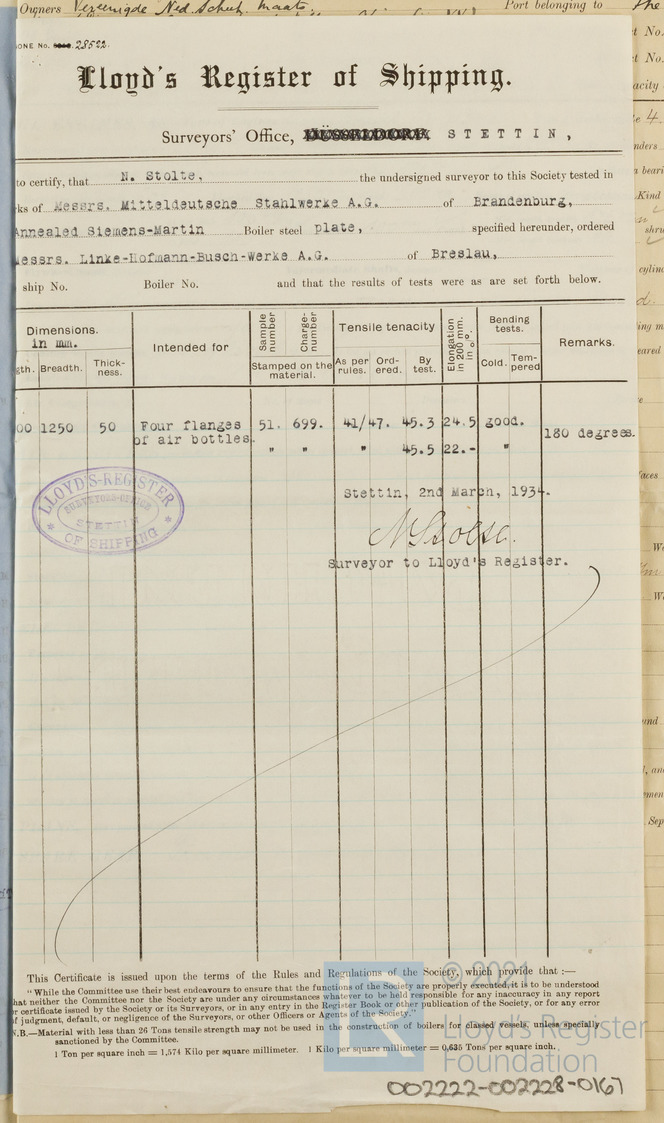 Owners Vereenigde Ned. Scheep. Maats. Port belonging to The
ONE No. 28522.
Lloyd's Register of Shipping.
Surveyors' Office, DÜSSELDORF. STETTIN,
to certify, that N. Stolte, the undersigned surveyor to this Society tested in
ks of Messrs. Mitteldeutsche Stahlwerke A.G. of Brandenburg,
Annealed Siemens-Martin Boiler steel plate, specified hereunder, ordered
Messrs. Linke-Hofmann-Busch-Werke A.G. of Breslau,
ship No. Boiler No. and that the results of tests were as are set forth below.
Dimensions. in mm. Intended for Sample number Charge-number Tensile tenacity Elongation in 200 mm. in %. Bending tests. Remarks.
gth. Breadth. Thick-ness. Stamped on the material. As per rules. Ord-ered. By test. Cold. Tem-pered
00 1250 50 Four flanges 51. 699. 41/47. 45.3 24.5 good. 180 degrees.
of air bottles. " " " 45.5 22.- "
Stettin, 2nd March, 1934.
LLOYD'S-REGISTER
SURVEYORS-OFFICE
STETTIN
OF SHIPPING
N Stolte.
Surveyor to Lloyd's Register.
This Certificate is issued upon the terms of the Rules and Regulations of the Society, which provide that :—
"While the Committee use their best endeavours to ensure that the functions of the Society are properly executed, it is to be understood
hat neither the Committee nor the Society are under any circumstances whatever to be held responsible for any inaccuracy in any report
r certificate issued by the Society or its Surveyors, or in any entry in the Register Book or other publication of the Society, or for any error
f judgment, default, or negligence of the Surveyors, or other Officers or Agents of the Society."
N.B.—Material with less than 26 Tons tensile strength may not be used in the construction of boilers for classed vessels, unless specially
sanctioned by the Committee.
1 Ton per square inch = 1,574 Kilo per square millimeter. 1 Kilo per square millimeter = 0,635 Tons per square inch.
LR
© 2021
Lloyd's Register
Foundation
002222-002228-0167